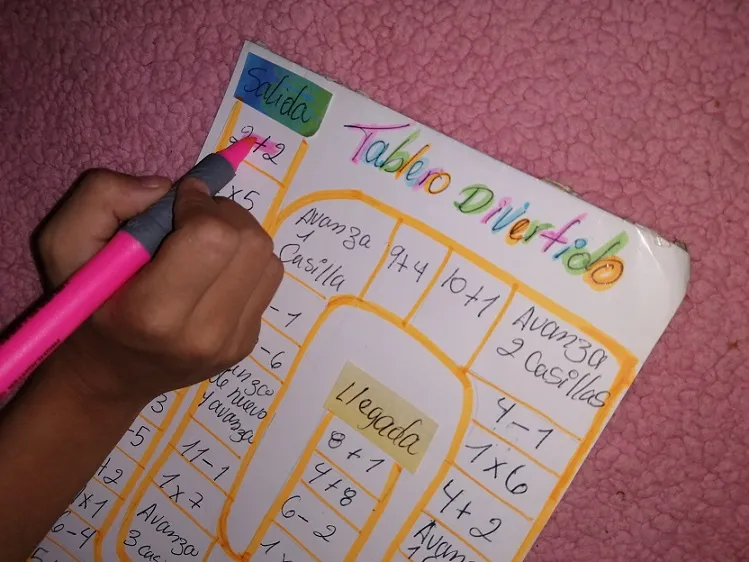 Salida
Tablero Divertido
2+2
x5
Avanza
1
Casilla
9+4
10+1
Avanza
2 Casillas
4-1
1x6
4+2
Avan
-1
-6
de nuevo
y avanza
11-1
1x7
Avanza
3 cas
3
-5
+2
x1
6-4
Llegada
8+1
4+8
6-2